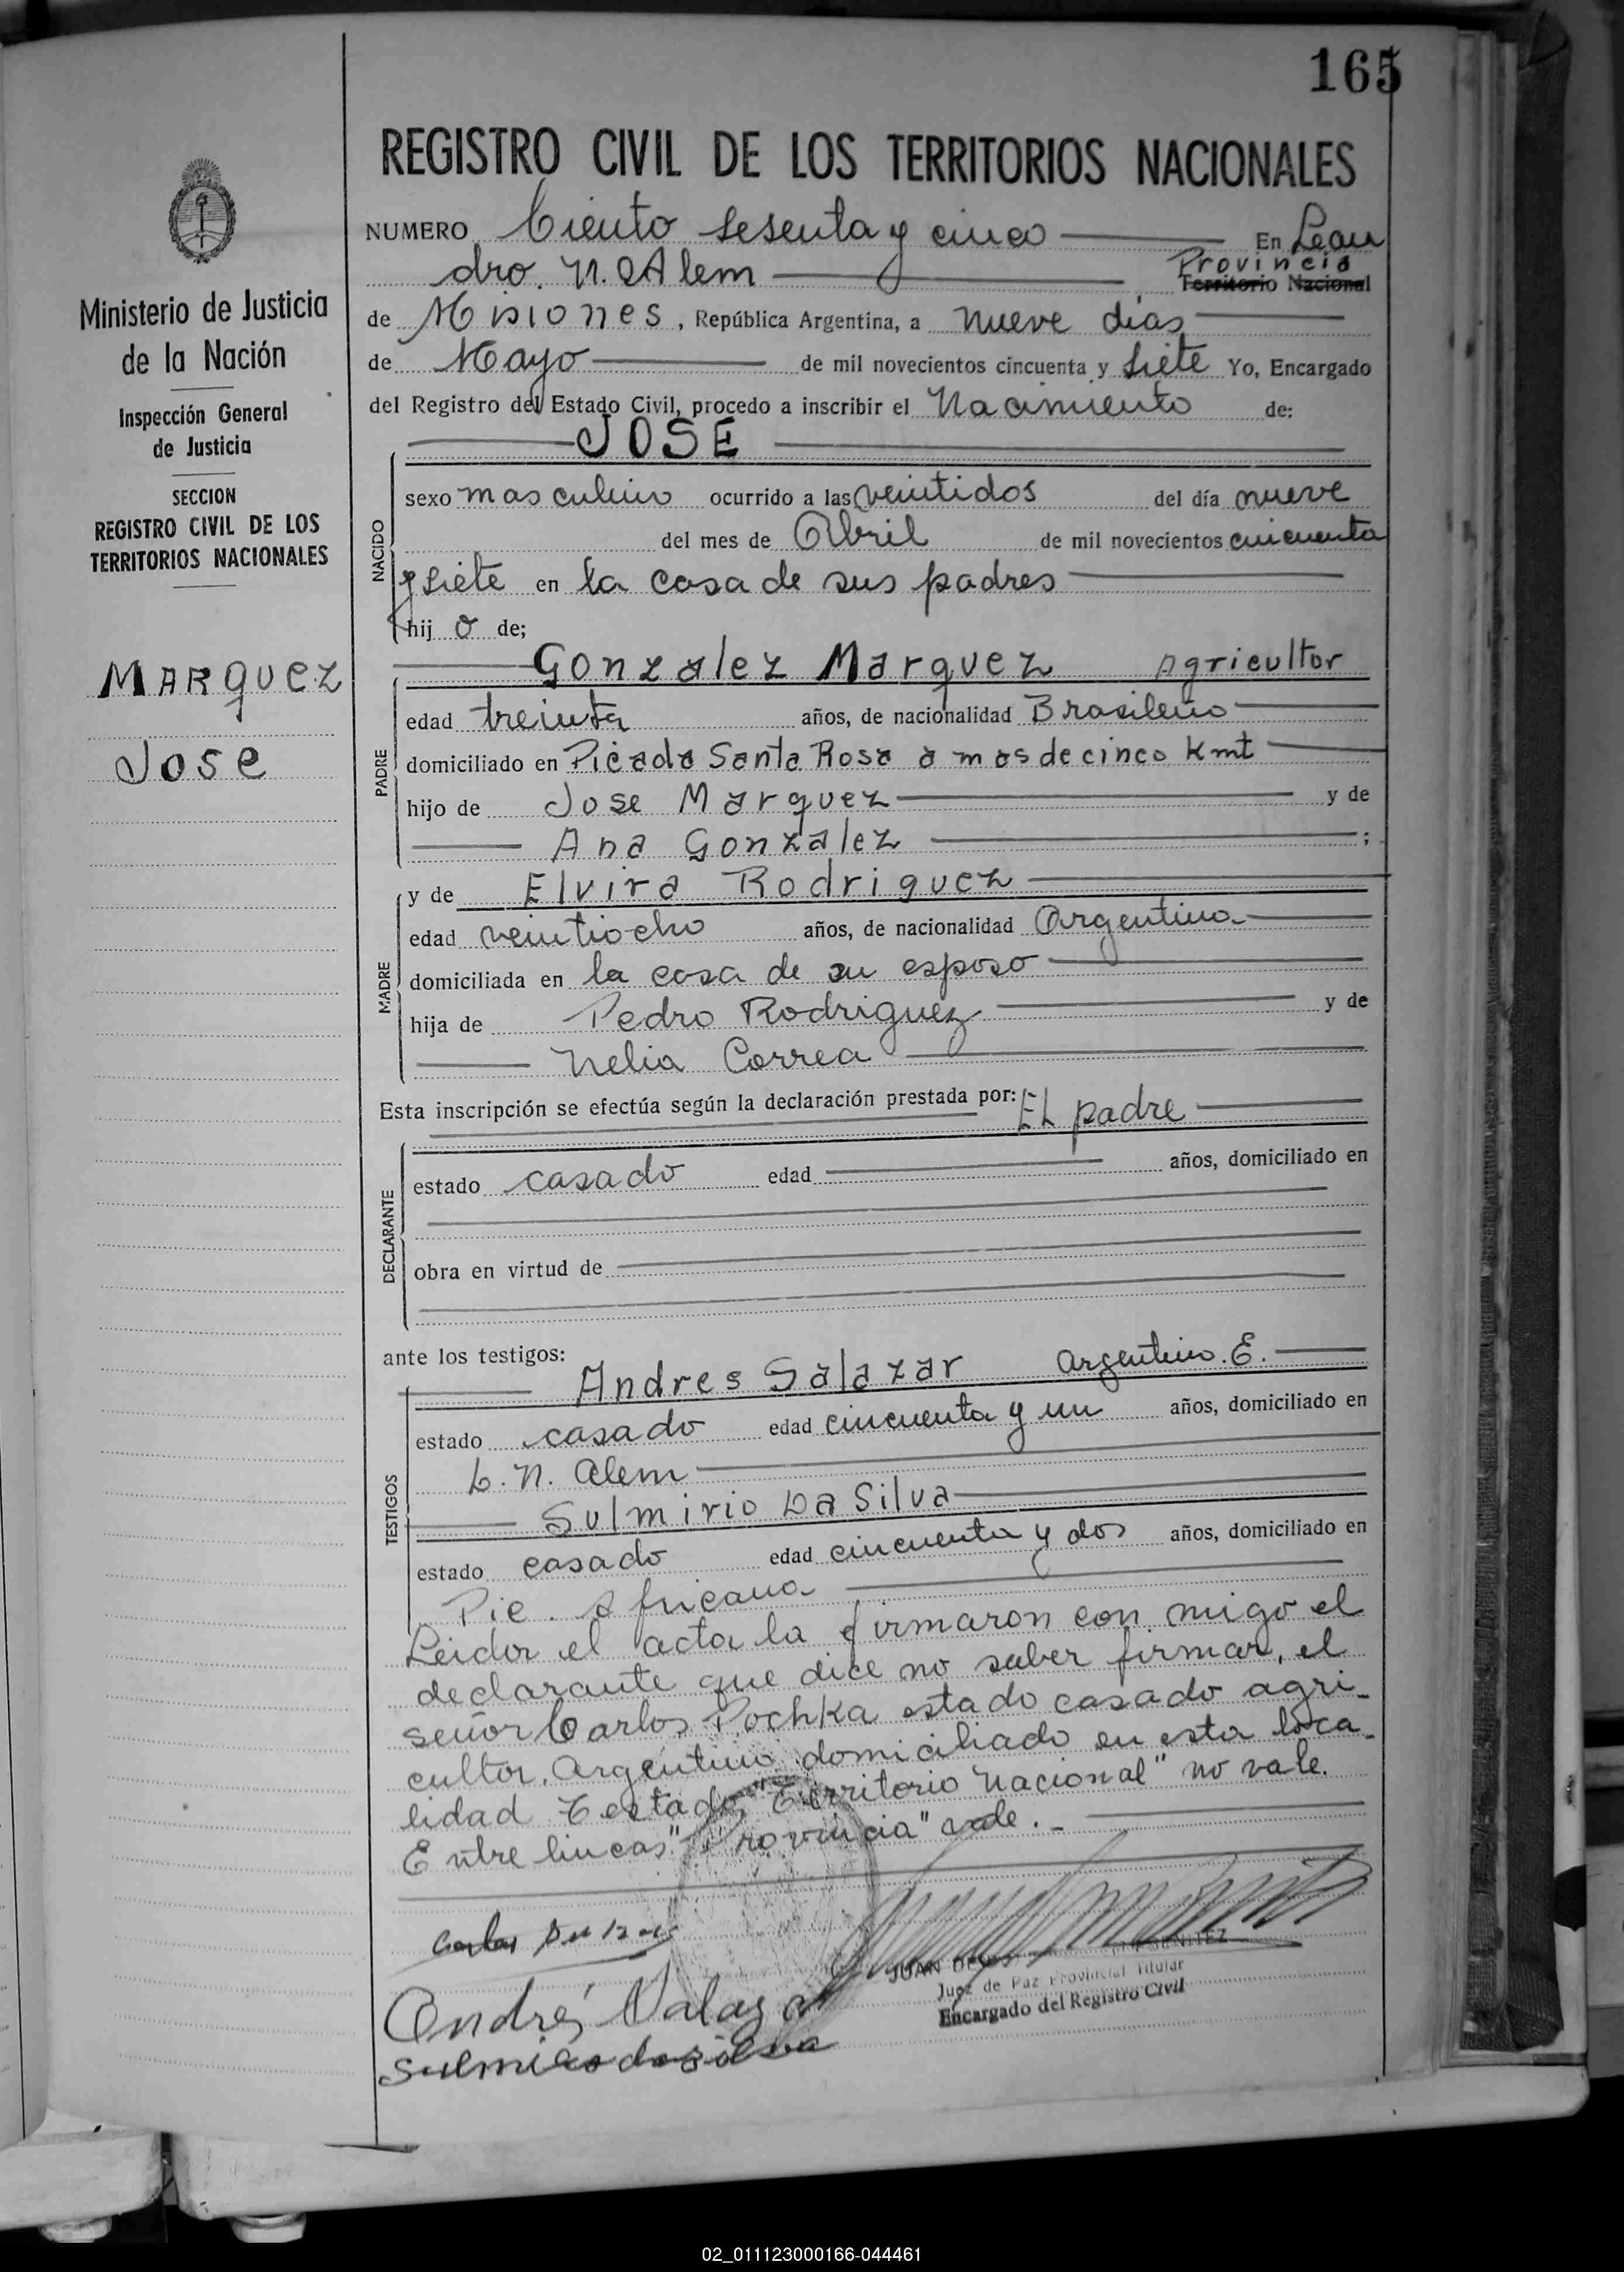 165
REGISTRO CIVIL DE LOS TERRITORIOS NACIONALES
NUMERO Ciento sesenta y cinco En Lean
dro. N. Alem Provincia
Territorio Nacional
de Misiones, República Argentina, a nueve días
de Mayo de mil novecientos cincuenta y siete Yo, Encargado
del Registro del Estado Civil, procedo a inscribir el Nacimiento de:
JOSE
NACIDO
sexo masculino ocurrido a las veintidos del día nueve
del mes de Abril de mil novecientos cincuenta
y siete en la casa de sus padres
hij o de;
Gonzalez Marquez Agricultor
PADRE
edad treinta años, de nacionalidad Brasileño
domiciliado en Picada Santa Rosa a mas de cinco Kmt
hijo de Jose Marquez y de
Ana Gonzalez ;
y de Elvira Rodriguez
MADRE
edad veintiocho años, de nacionalidad Argentina
domiciliada en la casa de su esposo
hija de Pedro Rodriguez y de
Nelia Correa
Esta inscripción se efectúa según la declaración prestada por: EL padre
DECLARANTE
estado casado edad años, domiciliado en
obra en virtud de
ante los testigos:
Andres Salazar Argentino. E.
TESTIGOS
estado casado edad cincuenta y un años, domiciliado en
L. N. Alem
Sulmirio Da Silva
estado casado edad cincuenta y dos años, domiciliado en
Pic. Africana
Leida el acta la firmaron con migo el
declarante que dice no saber firmar, el
señor Carlos Pochka estado casado agri-
cultor. Argentino domiciliado en esta loca-
lidad Testado "Territorio Nacional" no vale.
Entre lineas "Provincia" vale.-
Carlos
Andrés Salazar
Sulmirio da silva
JUAN BENITEZ
Juez de Paz Provincial Titular
Encargado del Registro Civil
Ministerio de Justicia
de la Nación
Inspección General
de Justicia
SECCION
REGISTRO CIVIL DE LOS
TERRITORIOS NACIONALES
MARquez
Jose
02_011123000166-044461